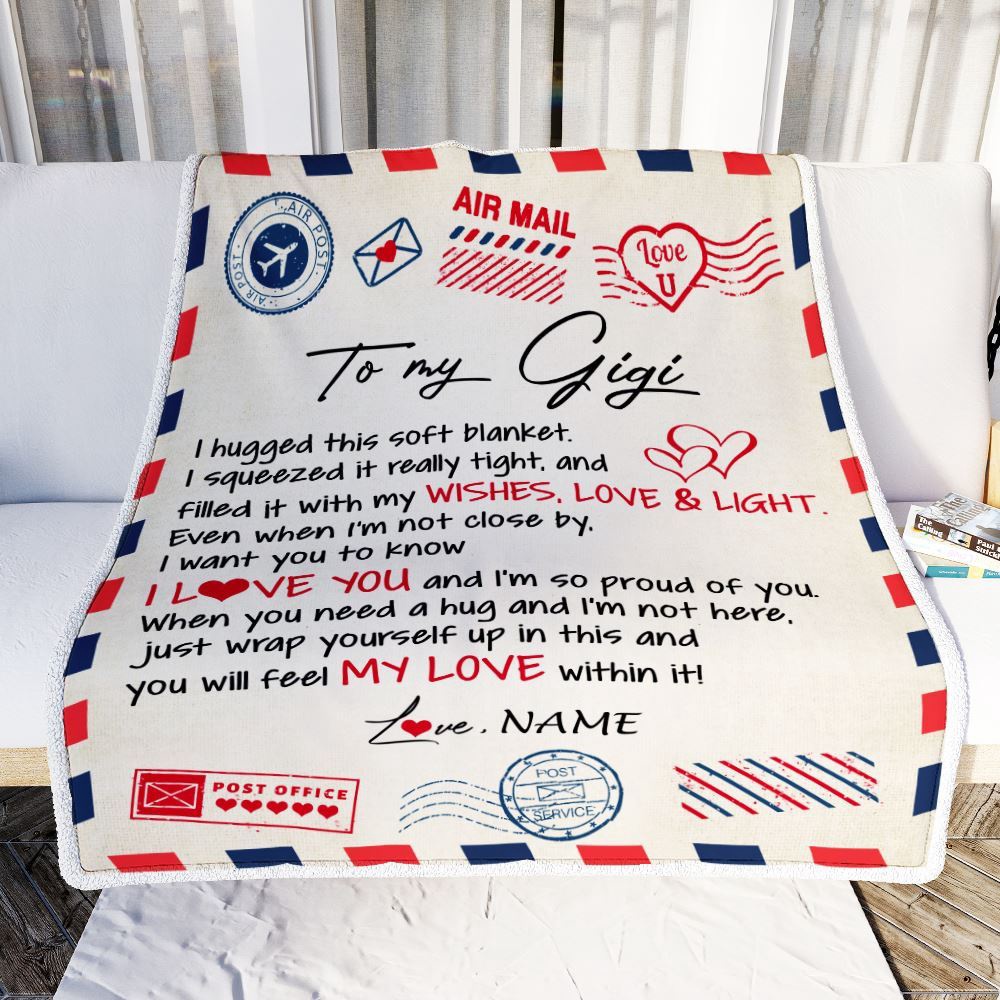 AIR POST
AIR POST
AIR POST
AIR MAIL
Love
U
To my Gigi
I hugged this soft blanket.
I squeezed it really tight, and
filled it with my WISHES, LOVE & LIGHT.
Even when I'm not close by,
I want you to know
I L❤VE YOU and I'm so proud of you.
When you need a hug and I'm not here,
just wrap yourself up in this and
you will feel MY LOVE within it!
L❤ve, NAME
POST OFFICE
POST
SERVICE
The
Calling
Paul